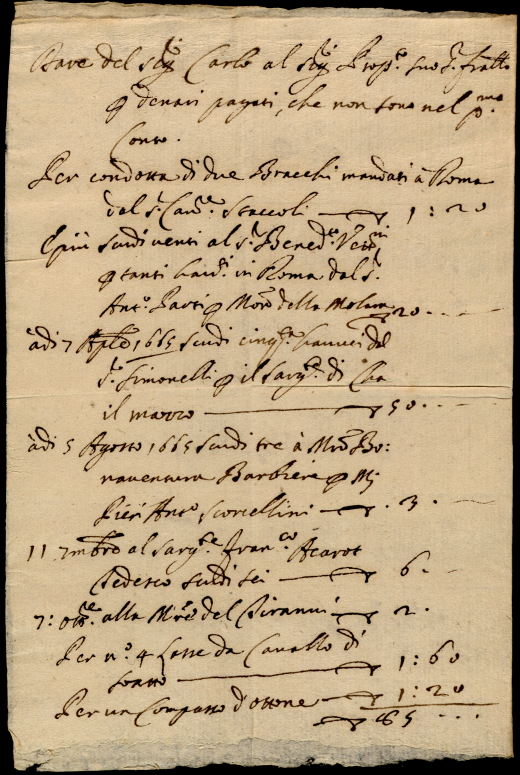 Dare del Sig.r Carlo al Sig.r Prop.o suo S.r fratto
p denari pagati, che non sono nel p.mo
Conto.
Per condotta di due Bracchi mandati à Roma
dal S.r Cav.re Staccoli 1:20
E più scudi venti al S.r Bened.o
p tanti hav.ti in Roma dal S.r
Ant.o Parti p Mro della Molara 20
àdi 7 Aple 1665 Scudi cinq.ta havuti dal
S.r Simonelli p il Sarg.te di
il mazzo 50
àdi 5 Agosto 1665 Scudi tre à Mro Bo:
naventura Barbiere p
Pier Ant.o Scorcellini 3
11 7mbre al Sarg.te Fran.co Acarot
Tedesco scudi sei 6
7: 8bre alla Mra del Tiranni 2
Per n.o 4 Casse da Cavallo di
1:60
Per un Compasso d'ottone 1:20
85